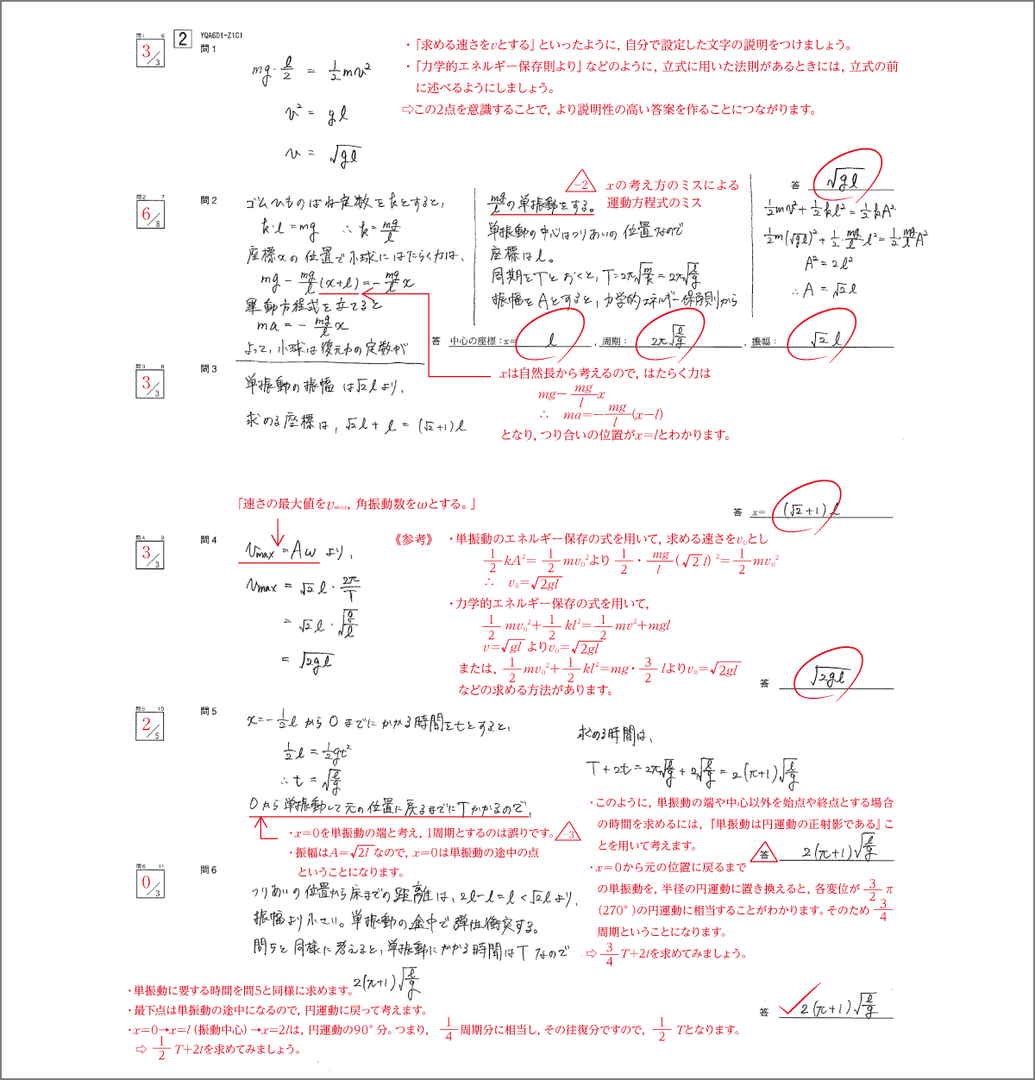 問1 6
3/3
2
YQA6D1-Z1C1
問1
mg・l/2 = 1/2mv²
v² = gl
v = √gl
・「求める速さをvとする」といったように，自分で設定した文字の説明をつけましょう。
・「力学的エネルギー保存則より」などのように，立式に用いた法則があるときには，立式の前
に述べるようにしましょう。
⇨この2点を意識することで，より説明性の高い答案を作ることにつながります。
答 √gl
問2 7
6/8
問2
ゴムひものばね定数をkとすると，
k・l=mg ∴k=mg/l
座標xの位置で小球にはたらく力は，
mg－mg/l(x+l)=－mg/l x
運動方程式を立てると
ma=－mg/l x
よって，小球は復元力の定数が
mg/lの単振動をする。
-2
xの考え方のミスによる
運動方程式のミス
単振動の中心はつりあいの位置なので
座標はl。
周期をTとおくと，T=2π√m/k=2π√l/g
振幅をAとすると，力学的エネルギー保存則から
1/2mv²+1/2kl²=1/2kA²
1/2m(√gl)²+1/2・mg/l・l²=1/2・mg/lA²
A²=2l²
∴A=√2l
答 中心の座標：x= l ，周期： 2π√l/g ，振幅： √2l
xは自然長から考えるので，はたらく力は
mg－mg/l x
∴ ma=－mg/l(x－l)
となり，つり合いの位置がx=lとわかります。
問3 8
3/3
問3
単振動の振幅は√2lより，
求める座標は，√2l+l=(√2+1)l
答 x= (√2+1)l
「速さの最大値をvmax，角振動数をωとする。」
問4 9
3/3
問4
vmax=Aωより，
vmax=√2l・2π/T
=√2l・√g/l
=√2gl
《参考》
・単振動のエネルギー保存の式を用いて，求める速さをv₀とし
1/2kA²=1/2mv₀²より 1/2・mg/l(√2l)²=1/2mv₀²
∴ v₀=√2gl
・力学的エネルギー保存の式を用いて，
1/2mv₀²+1/2kl²=1/2mv²+mgl
v=√glよりv₀=√2gl
または，1/2mv₀²+1/2kl²=mg・3/2lよりv₀=√2gl
などの求める方法があります。
答 √2gl
問5 10
2/5
問5
x=－1/2lから0までにかかる時間をtとすると，
1/2l=1/2gt²
∴t=√l/g
0から単振動して元の位置に戻るまでにTかかるので，
・x=0を単振動の端と考え，1周期とするのは誤りです。
-3
・振幅はA=√2lなので，x=0は単振動の途中の点
ということになります。
求める時間は，
T+2t=2π√l/g+2√l/g=2(π+1)√l/g
・このように，単振動の端や中心以外を始点や終点とする場合
の時間を求めるには，『単振動は円運動の正射影である』こ
とを用いて考えます。
答 2(π+1)√l/g
・x=0から元の位置に戻るまで
の単振動を，半径の円運動に置き換えると，各変位が3/2π
(270°)の円運動に相当することがわかります。そのため3/4
周期ということになります。
⇨3/4T+2tを求めてみましょう。
問6 11
0/3
問6
つりあいの位置から床までの距離は，2l－l=l<√2lより，
振幅より小さい。単振動の途中で弾性衝突する。
問5と同様に考えると，単振動にかかる時間はTなので
2(π+1)√l/g
・単振動に要する時間を問5と同様に求めます。
・最下点は単振動の途中になるので，円運動に戻って考えます。
・x=0→x=l（振動中心）→x=2lは，円運動の90°分。つまり，1/4周期分に相当し，その往復分ですので，1/2Tとなります。
⇨1/2T+2tを求めてみましょう。
答 2(π+1)√l/g